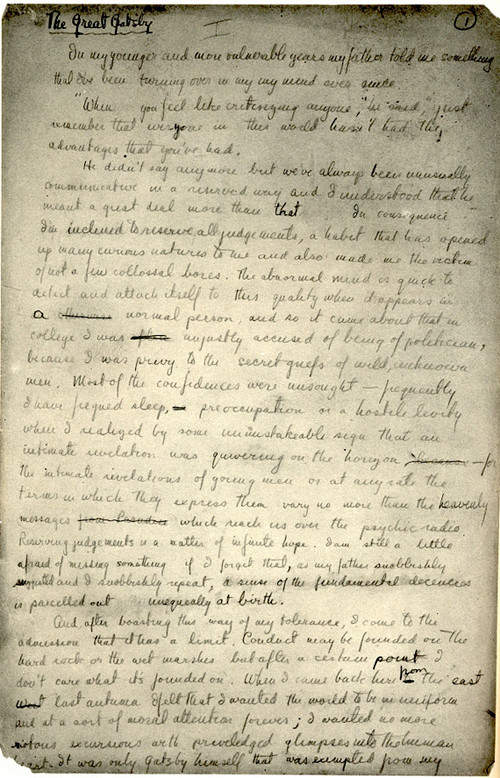 The Great Gatsby
I
1
In my younger and more vulnerable years my father told me something
that I've been turning over in my my mind ever since.
"When you feel like critisizing anyone," he said, "just
remember that everyone in this world hasn't had the
advantages that you've had.
He didn't say any more but we've always been unusually
communicative in a reserved way and I understood that he
meant a great deal more than that. In consequence
I'm inclined to reserve all judgements, a habit that has opened
up many curious natures to me and also made me the victim
of not a few collossal bores. The abnormal mind is quick to
detect and attach itself to this quality when it appears in
a normal person, and so it came about that in
college I was unjustly accused of being of politician,
because I was privy to the secret griefs of wild, unknown
men. Most of the confidences were unsought — frequently
I have feigned sleep, preoccupation or a hostile levity
when I realized by some unmistakeable sign that an
intimate revelation was quivering on the horizon — for
the intimate revelations of young men or at any rate the
terms in which they express them vary no more than the heavenly
messages from which reach us over the psychic radio.
Reserving judgements is a matter of infinite hope. I am still a little
afraid of missing something if I forget that, as my father snobbishly
suggested and I snobbishly repeat, a sense of the fundamental decencies
is parcelled out unequally at birth.
And after boasting this way of my tolerance, I come to the
admission that it has a limit. Conduct may be founded on the
hard rock or the wet marshes but after a certain point I
don't care what it's founded on. When I came back here from the east
last autumn I felt that I wanted the world to be in uniform
and at a sort of moral attention forever; I wanted no more
riotous excursions with priveledged glimpses into the human
heart. It was only Gatsby himself that was exempted from my